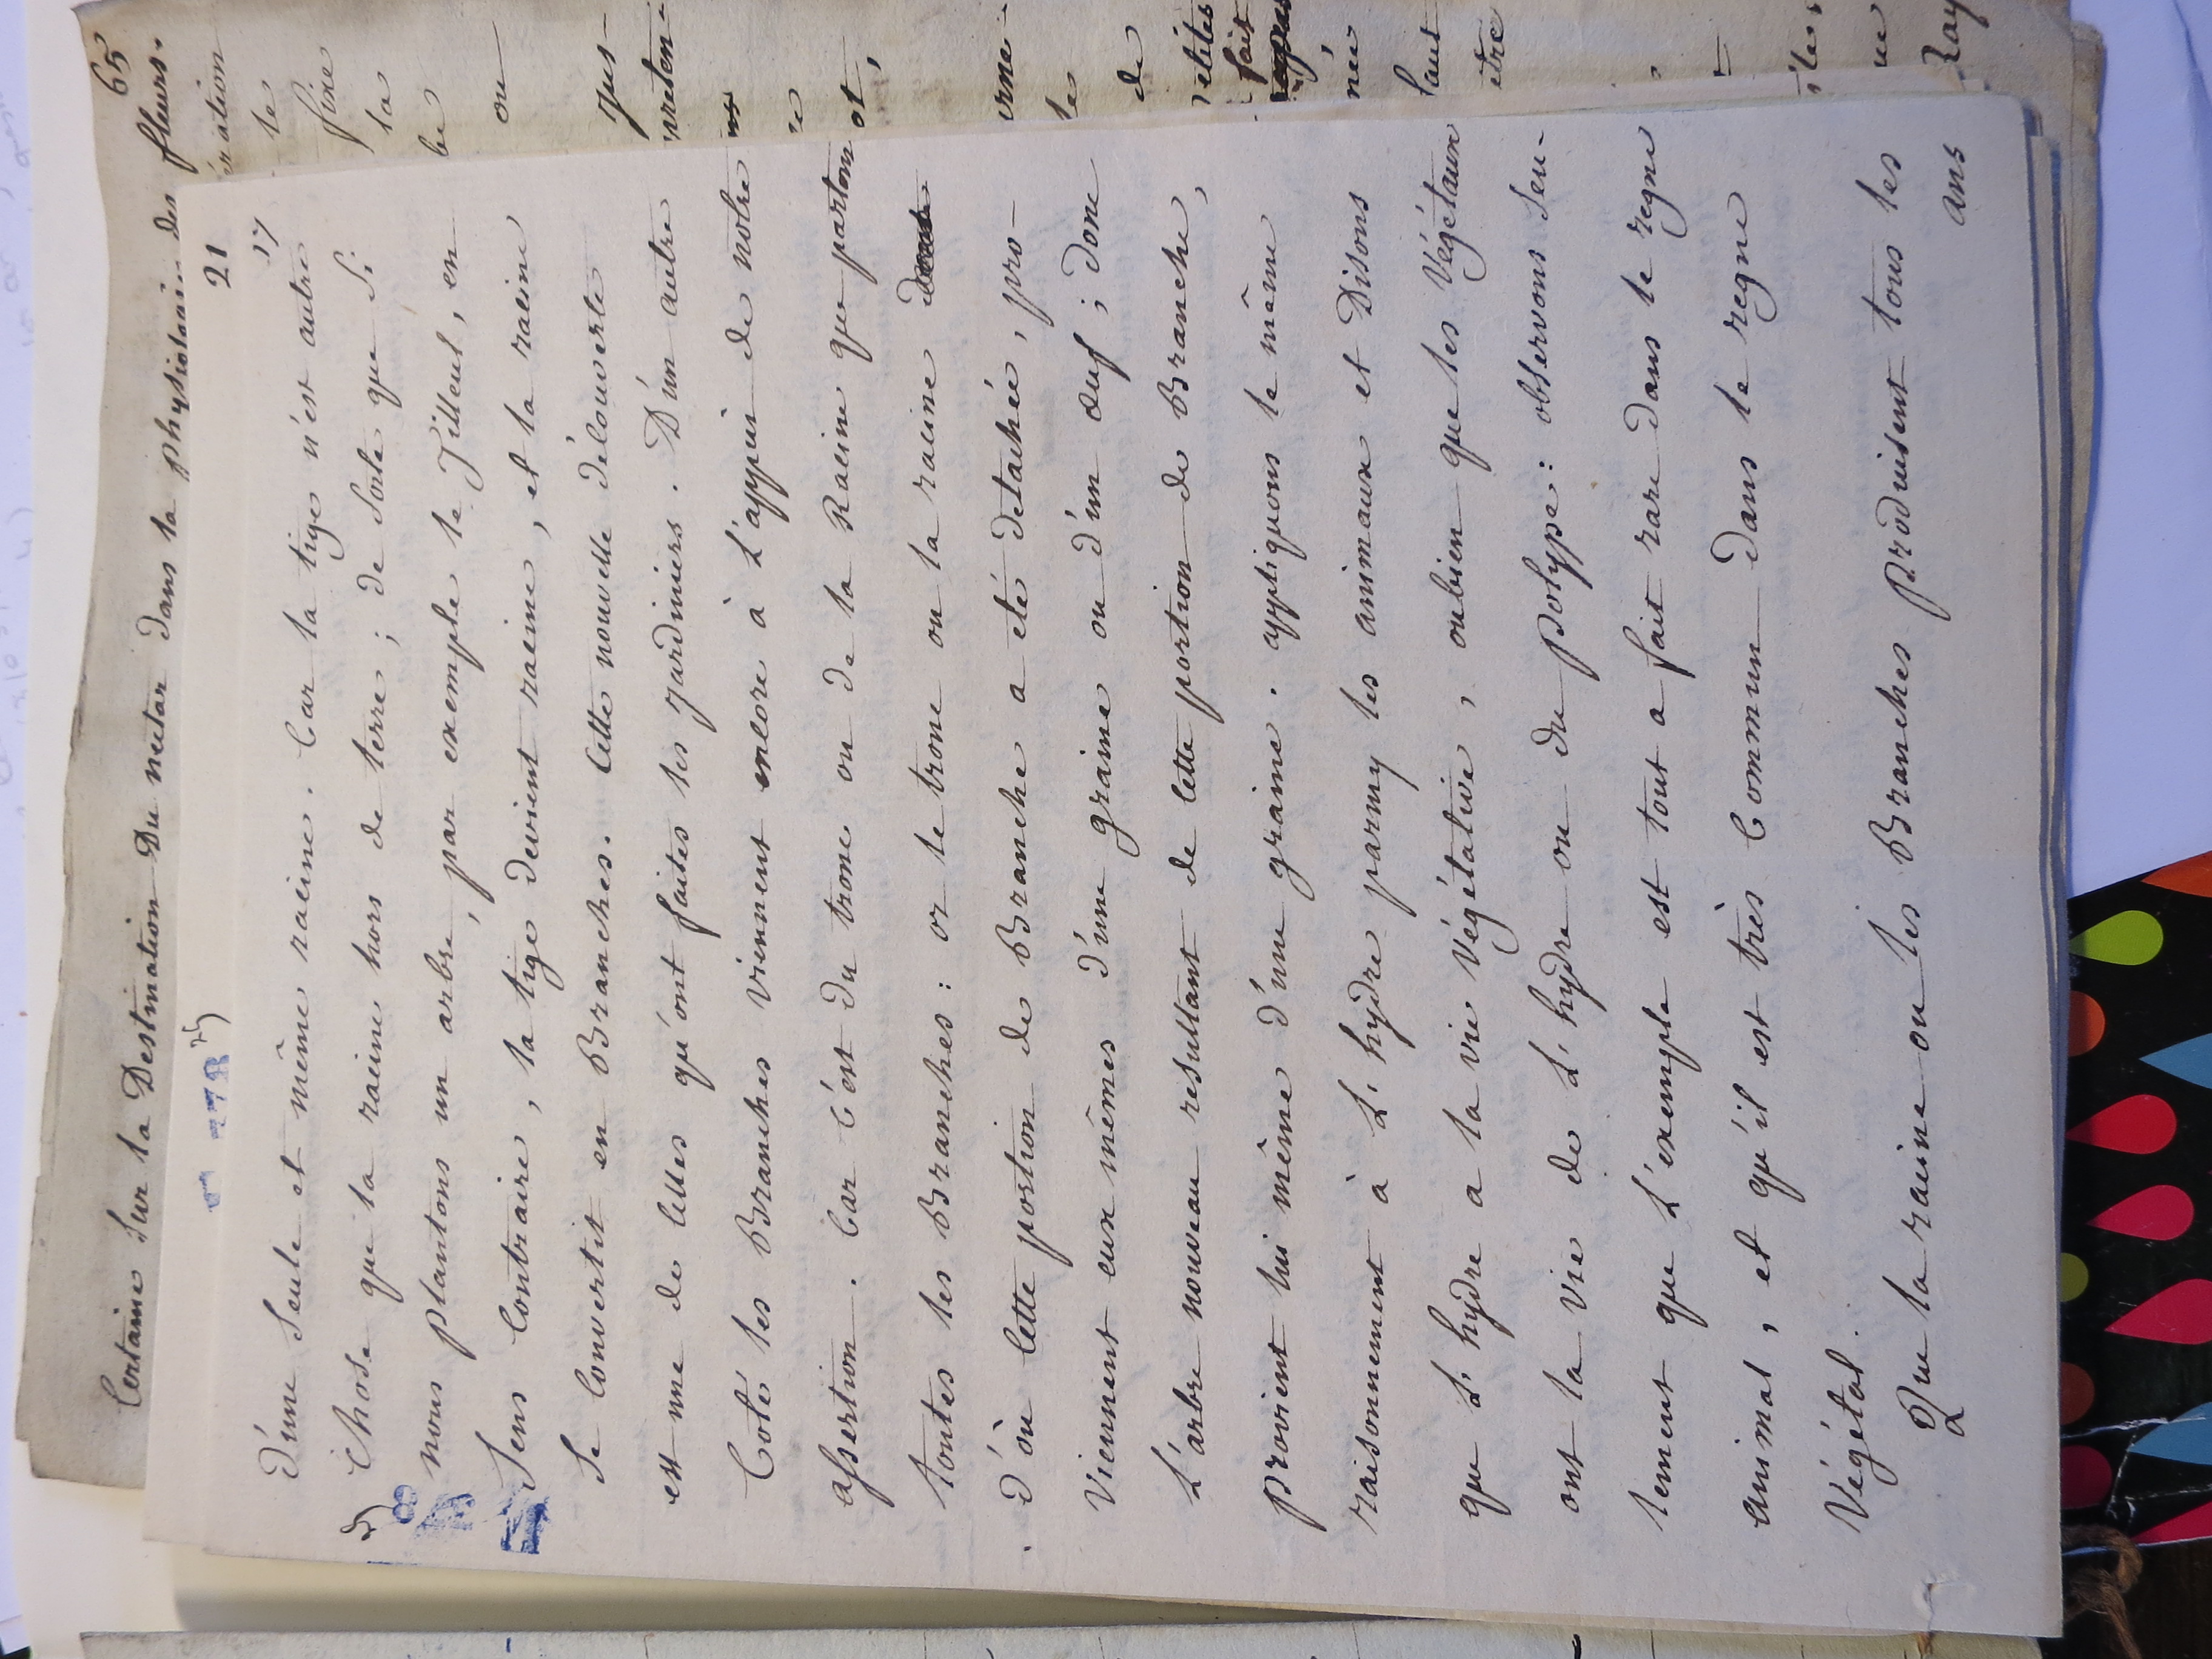 65
Certaine Sur la Destination Du nectar dans la physiologie des fleurs.
21
17
d'une seule et même racine. Car la tige n'est autre
Chose que la racine hors de terre ; de Sorte que Si
nous plantons un arbre, par exemple le Tilleul, en
Sens Contraire, la tige devient racine, et la racine
Se Convertit en Branches. Cette nouvelle découverte
est une de celles qu'ont faites les jardiniers. D'un autre
Coté les Branches viennent encore à L'appui de notre
assertion. Car c'est du tronc ou de la Racine que partent
toutes les Branches : or le tronc ou la racine
d'où cette portion de Branche a eté detachée, pro-
viennent eux mêmes d'une graine ou d'un œuf ; donc
L'arbre nouveau resultant de cette portion de Branche,
provient lui même d'une graine. appliquons le même
raisonnement à L'hydre parmy les animaux et Disons
que L'hydre a la vie végétative, oubien que les Végétaux
ont la vie de L'hydre ou du polype : observons Seu-
lement que L'exemple est tout a fait rare dans le regne
animal, et qu'il est très Commun dans le regne
Végétal.
Que la racine ou les Branches produisent tous les
ans
ération
le
fixe
la
be
ou
jus-
ot,
les
de
fait
née
être
Ray